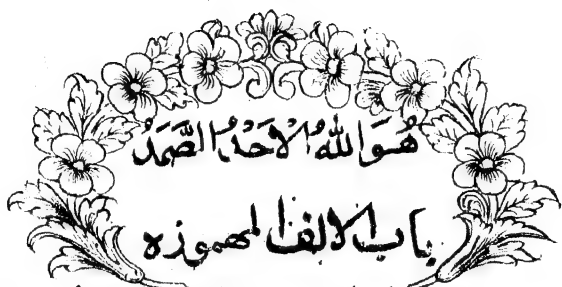 هُوَ اللهُ الْاَحَدُ الصَّمَدُ
باب الالف المهموزه